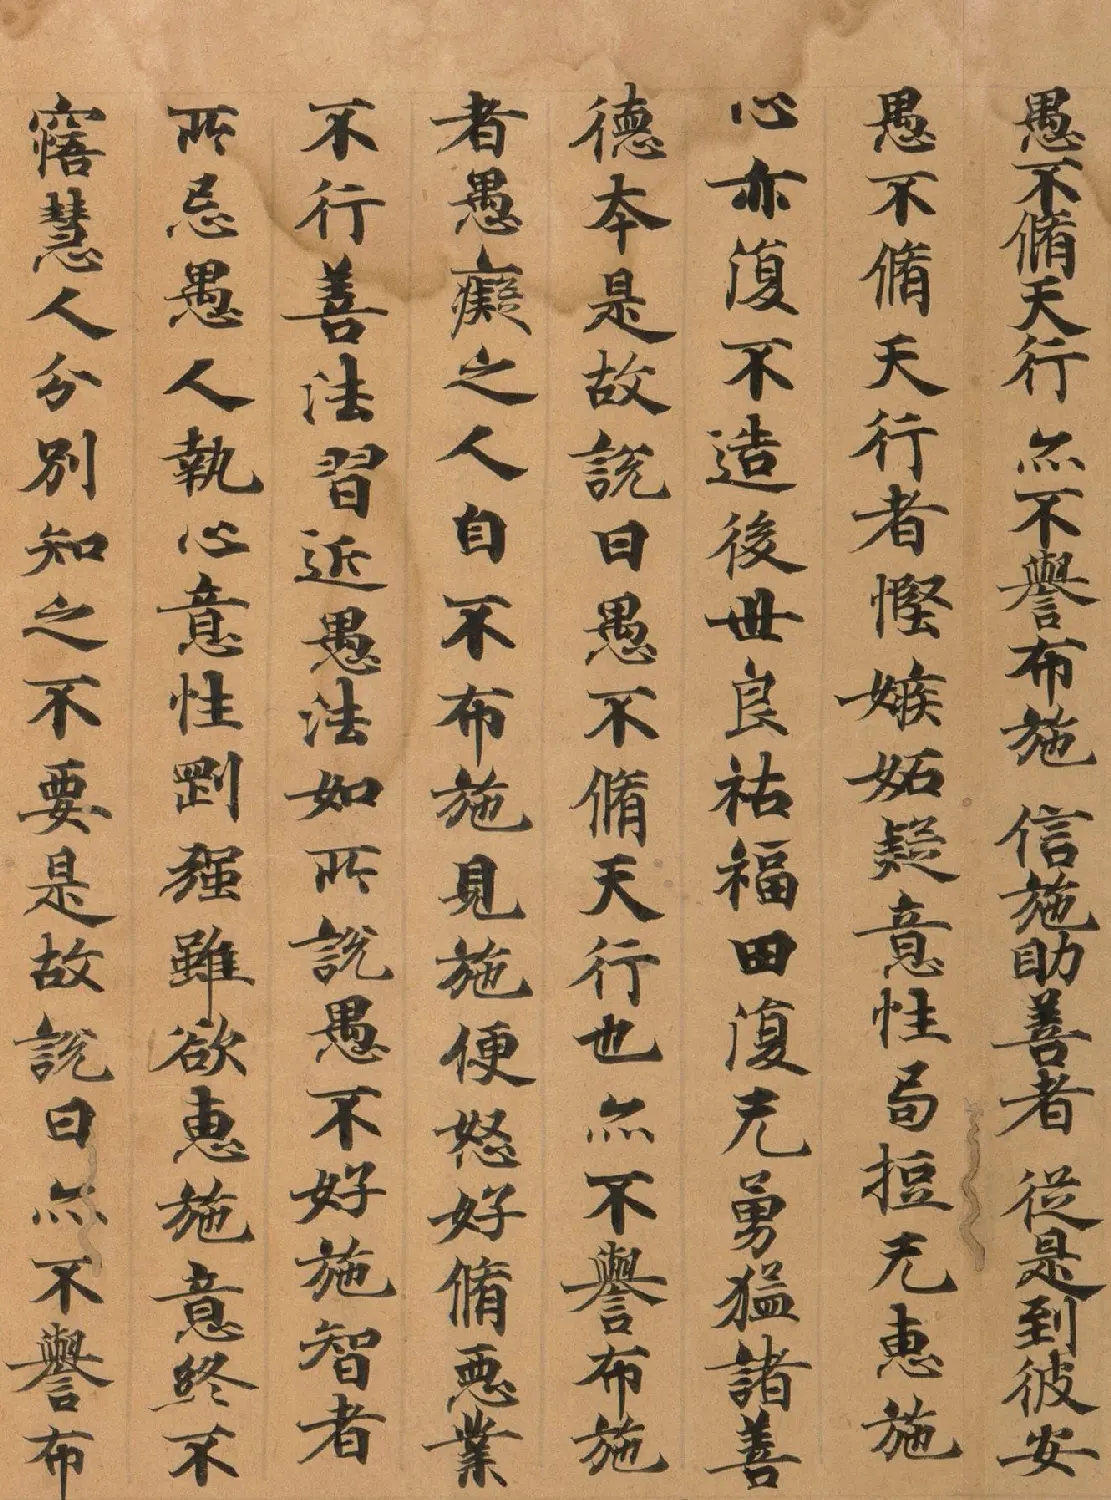 愚不脩天行 亦不譽布施 信施助善者 從是到彼安
愚不脩天行者慳嫉妬疑意性局短无惠施
心亦復不造後世良祐福田復无勇猛諸善
德本是故說曰愚不脩天行也亦不譽布施
者愚癡之人自不布施見施便怒好脩惡業
不行善法習近愚法如所說愚不好施智者
所忌愚人執心意性剛强雖欲惠施意終不
寤慧人分別知之不要是故說曰亦不譽布